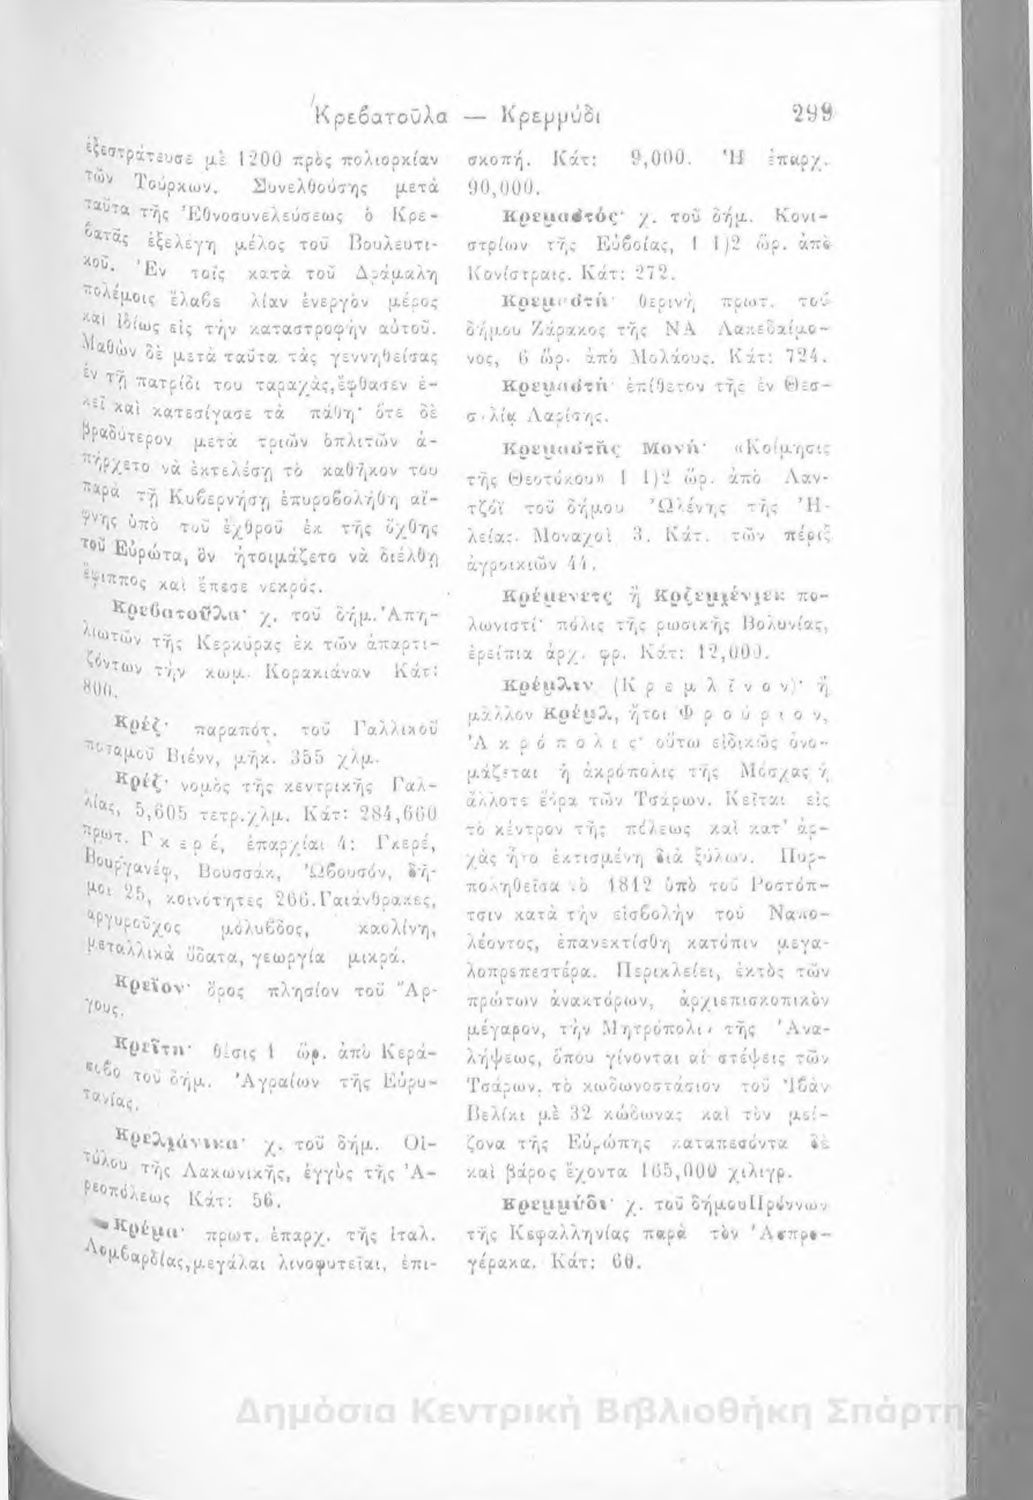 Κρεβατοῦλα — Κρεμμύδι 299
ἐξεστράτευσε μὲ 1200 πρὸς πολιορκίαν
τῶν Τούρκων. Συνελθούσης μετὰ
ταῦτα τῆς Ἐθνοσυνελεύσεως ὁ Κρε-
βατᾶς ἐξελέγη μέλος τοῦ Βουλευτι-
κοῦ. Ἐν τοῖς κατὰ τοῦ Δράμαλη
πολέμοις ἔλαβε λίαν ἐνεργὸν μέρος
καὶ ἰδίως εἰς τὴν καταστροφὴν αὐτοῦ.
Μαθὼν δὲ μετὰ ταῦτα τὰς γεννηθείσας
ἐν τῇ πατρίδι του ταραχὰς, ἔφθασεν ἐ-
κεῖ καὶ κατεσίγασε τὰ πάθη· ὅτε δὲ
βραδύτερον μετὰ τριῶν ὁπλιτῶν ἀ-
πήρχετο νὰ ἐκτελέσῃ τὸ καθῆκον του
παρὰ τῇ Κυβερνήσῃ ἐπυροβολήθη αἴ-
φνης ὑπὸ τοῦ ἐχθροῦ ἐκ τῆς ὄχθης
τοῦ Εὐρώτα, ὃν ἡτοιμάζετο νὰ διέλθῃ
ἔφιππος καὶ ἔπεσε νεκρός.
Κρεβατοῦλα· χ. τοῦ δήμ. Ἀπη-
λιωτῶν τῆς Κερκύρας ἐκ τῶν ἀπαρτι-
ζόντων τὴν κωμ. Κορακιάναν Κάτ:
800.
Κρέζ· παραπότ. τοῦ Γαλλικοῦ
ποταμοῦ Βιένν, μήκ. 355 χλμ.
Κρέζ· νομὸς τῆς κεντρικῆς Γαλ-
λίας, 5,605 τετρ.χλμ. Κάτ: 284,660
πρωτ. Γκερέ, ἐπαρχίαι 4: Γκερέ,
Βουργανέφ, Βουσσάκ, Ὠβουσόν, δή-
μοι 25, κοινότητες 266. Γαιάνθρακες,
ἀργυροῦχος μόλυβδος, καολίνη,
μεταλλικὰ ὕδατα, γεωργία μικρά.
Κρεῖον· ὄρος πλησίον τοῦ Ἄρ-
γους.
Κρεῖτη· θέσις 1 ὥρ. ἀπὸ Κερά-
τοῦ δήμ. Ἀγραίων τῆς Εὐρυ-
τανίας.
Κρελιάνικα· χ. τοῦ δήμ. Οἰ-
τύλου τῆς Λακωνικῆς, ἐγγὺς τῆς Ἀ-
ρεοπόλεως Κάτ: 56.
Κρέμα· πρωτ. ἐπαρχ. τῆς Ἰταλ.
Λομβαρδίας, μεγάλαι λινοφυτεῖαι, ἐπι-
σκοπή. Κάτ: 9,000. Ἡ ἐπαρχ.
90,000.
Κρεμαστός· χ. τοῦ δήμ. Κονι-
στρίων τῆς Εὐβοίας, 1 1)2 ὥρ. ἀπὸ
Κονίστραις. Κάτ: 272.
Κρεμαστή· θερινὴ πρωτ. τοῦ
δήμου Ζάρακος τῆς ΝΑ Λακεδαίμο-
νος, 6 ὥρ. ἀπὸ Μολάους. Κάτ: 724.
Κρεμαστή· ἐπίθετον τῆς ἐν Θεσ-
σαλίᾳ Λαρίσης.
Κρεμαστῆς Μονή· «Κοίμησις
τῆς Θεοτόκου» 1 1)2 ὥρ. ἀπὸ Λαν-
τζόϊ τοῦ δήμου Ὠλένης τῆς Ἠ-
λείας. Μοναχοὶ 3. Κάτ. τῶν πέριξ
ἀγροικιῶν 44.
Κρέμενετς ἢ Κρζεμιένιεκ πο-
λωνιστί· πόλις τῆς ρωσικῆς Βολυνίας,
ἐρείπια ἀρχ. φρ. Κάτ: 12,000.
Κρέμλιν (Κρεμλῖνον)· ἢ
μᾶλλον Κρέμλ, ἤτοι Φρούριον,
Ἀκρόπολις· οὕτω εἰδικῶς ὀνο-
μάζεται ἡ ἀκρόπολις τῆς Μόσχας ἡ
ἄλλοτε ἕδρα τῶν Τσάρων. Κεῖται εἰς
τὸ κέντρον τῆς πόλεως καὶ κατ' ἀρ-
χὰς ἦτο ἐκτισμένη διὰ ξύλων. Πυρ-
ποληθεῖσα τὸ 1812 ὑπὸ τοῦ Ροστόπ-
τσιν κατὰ τὴν εἰσβολὴν τοῦ Ναπο-
λέοντος, ἐπανεκτίσθη κατόπιν μεγα-
λοπρεπεστέρα. Περικλείει, ἐκτὸς τῶν
πρώτων ἀνακτόρων, ἀρχιεπισκοπικὸν
μέγαρον, τὴν Μητρόπολιν τῆς Ἀνα-
λήψεως, ὅπου γίνονται αἱ στέψεις τῶν
Τσάρων, τὸ κωδωνοστάσιον τοῦ Ἰβὰν
Βελίκι μὲ 32 κώδωνας καὶ τὸν μεί-
ζονα τῆς Εὐρώπης καταπεσόντα δὲ
καὶ βάρος ἔχοντα 165,000 χιλιγρ.
Κρεμμύδι· χ. τοῦ δήμου Πρόννων
τῆς Κεφαλληνίας παρὰ τὸν Ἀσπρο-
γέρακα. Κάτ: 60.
Δημόσια Κεντρική Βιβλιοθήκη Σπάρτη